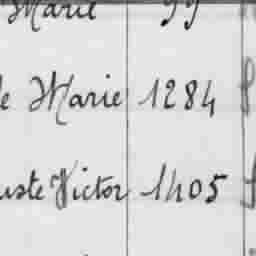 Marie 99
le Marie 1284
uste Victor 1405